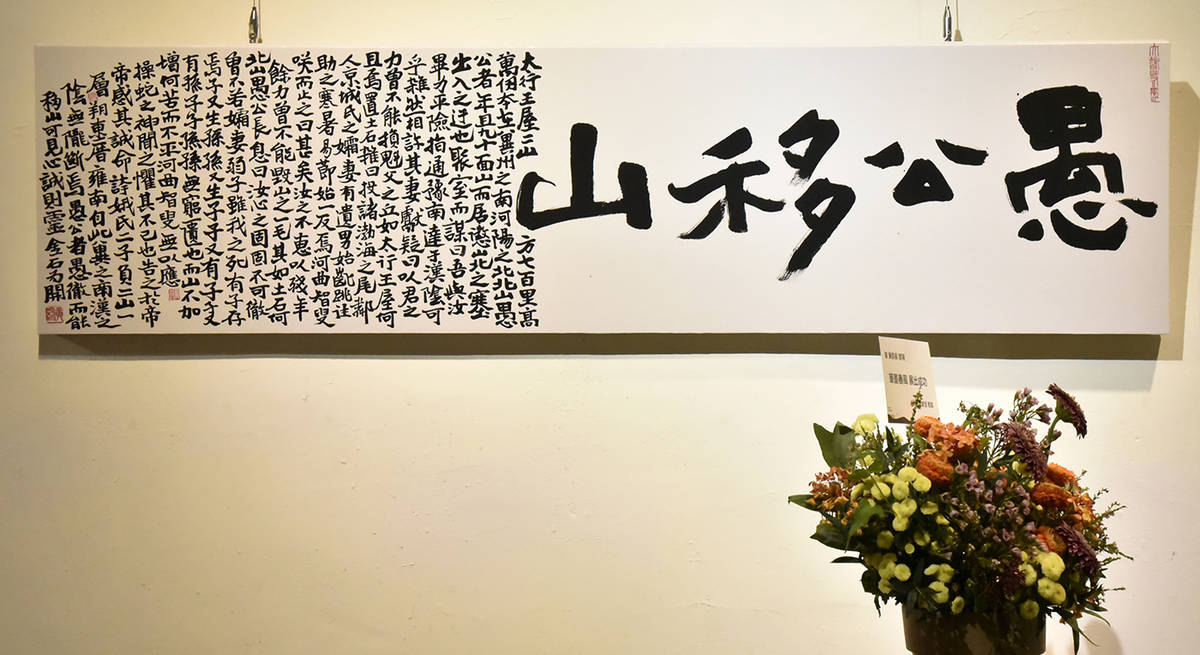 愚公移山
太行王屋二山 方七百里高
萬仞本在冀州之南河陽之北山愚
公者年且九十面山而居懲山北之塞
出入之迂也聚室而謀曰吾與汝
畢力平險指通豫南達于漢陰可
乎雜然相許其妻獻疑曰以君之
力曾不能損魁父之丘如太行王屋何
且焉置土石雜曰投諸渤海之尾鄰
人京城氏之孀妻有遺男始齔跳往
助之寒暑易節始一反焉河曲智叟
笑而止之曰甚矣汝之不惠以殘年
餘力曾不能毀山之一毛其如土石何
北山愚公長息曰汝心之固固不可徹
曾不若孀妻弱子雖我之死有子存
焉子又生孫孫又生子子又有子子又
有孫子子孫孫無窮匱也而山不加
增何苦而不平河曲智叟無以應
操蛇之神聞之懼其不已也告之於帝
帝感其誠命誇娥氏二子負二山一
厝朔東厝雍南自此冀之南漢之
陰無隴斷焉愚公者愚徹而能
移山可見心誠則靈金石為開
春風 展出成功